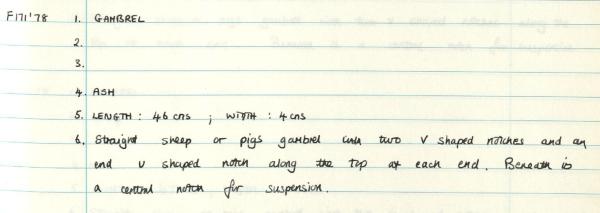 F171'78 1. GAMBREL
2.
3.
4. ASH
5. LENGTH : 46 cms ; WIDTH : 4 cms
6. Straight sheep or pigs gambrel with two V shaped notches and an
end v shaped notch along the top at each end. Beneath is
a central notch for suspension.